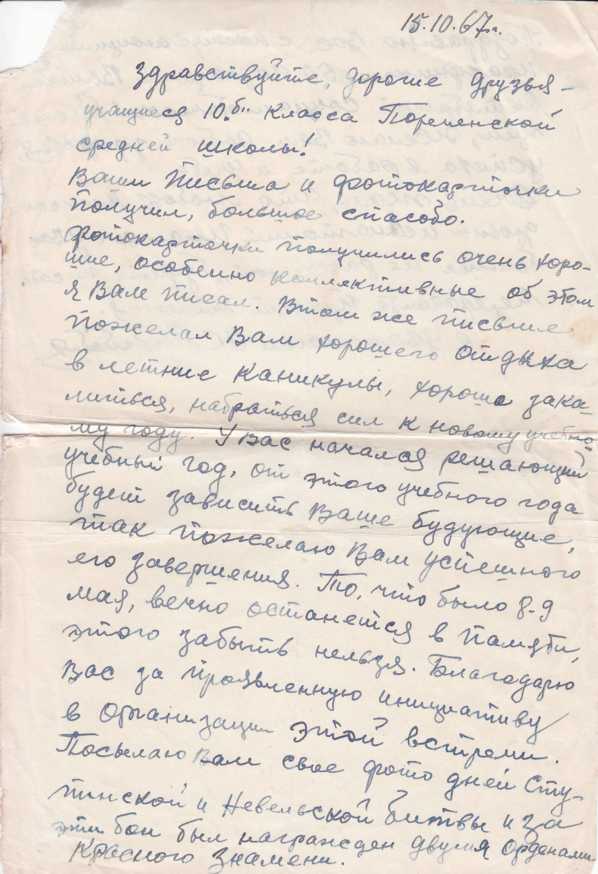 15.10.67г.
Здравствуйте, дорогие друзья -
учащиеся 10.б" класса
средней школы!
Ваши письма и фотокарточки
получил, большое спасибо.
Фотокарточки получились очень хоро-
шие, особенно коллективные об этом
я Вам писал. В том же письме
пожелал Вам хорошего отдыха
в летние каникулы, хорошо зака-
литься, набраться сил к новому учебно-
му году. У Вас начался решающий
учебный год, от этого учебного года
будет зависить Ваше будующие,
так пожелаю Вам успешного
его завершения. То, что было 8-9
мая, вечно останется в памяти,
этого забыть нельзя. Благодарю
Вас за проявленную инициативу
в организации этой встречи.
Посылаю Вам свое фото дней
и Невельской битвы и за
эти бои был награжден двумя Орденами
Красного Знамени.